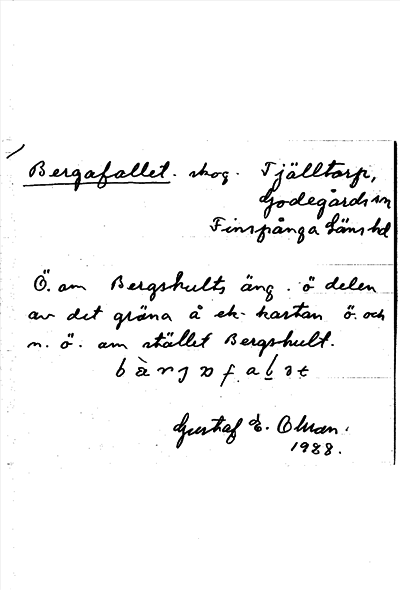 Bergafallet. skog. Tjälltorp,
Godegårds sn
Finspånga Läns hd
Ö. om Bergshults äng. ö delen
av det gröna å ek. kartan ö. och
n. ö. om stället Bergshult.
Gustaf E. Olson.
1928.